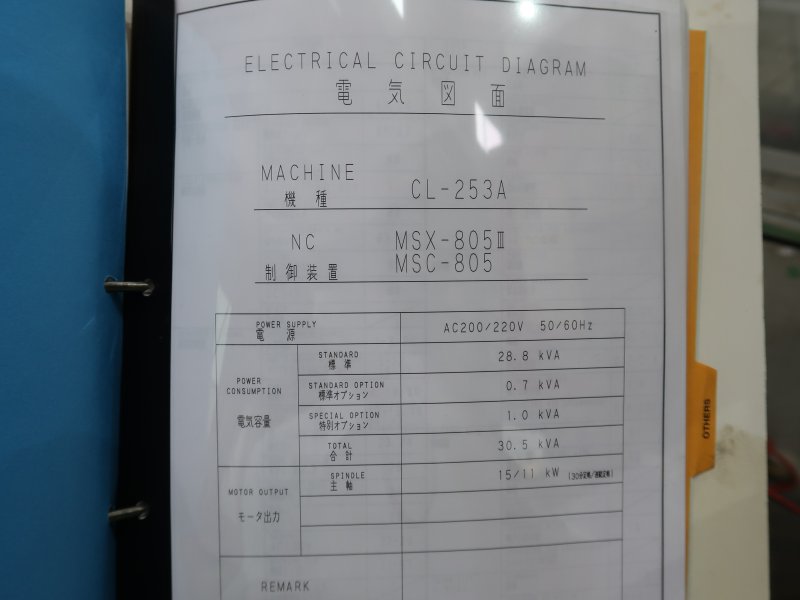 ELECTRICAL CIRCUIT DIAGRAM
電気図面
MACHINE
機種
CL-253A
NC
制御装置
MSX-805Ⅲ
MSC-805
POWER SUPPLY
電源
AC200/220V 50/60Hz
POWER
CONSUMPTION
電気容量
STANDARD
標準
28.8 kVA
STANDARD OPTION
標準オプション
0.7 kVA
SPECIAL OPTION
特別オプション
1.0 kVA
TOTAL
合計
30.5 kVA
MOTOR OUTPUT
モータ出力
SPINDLE
主軸
15/11 kW (30分定格/連続定格)
REMARK
OTHERS